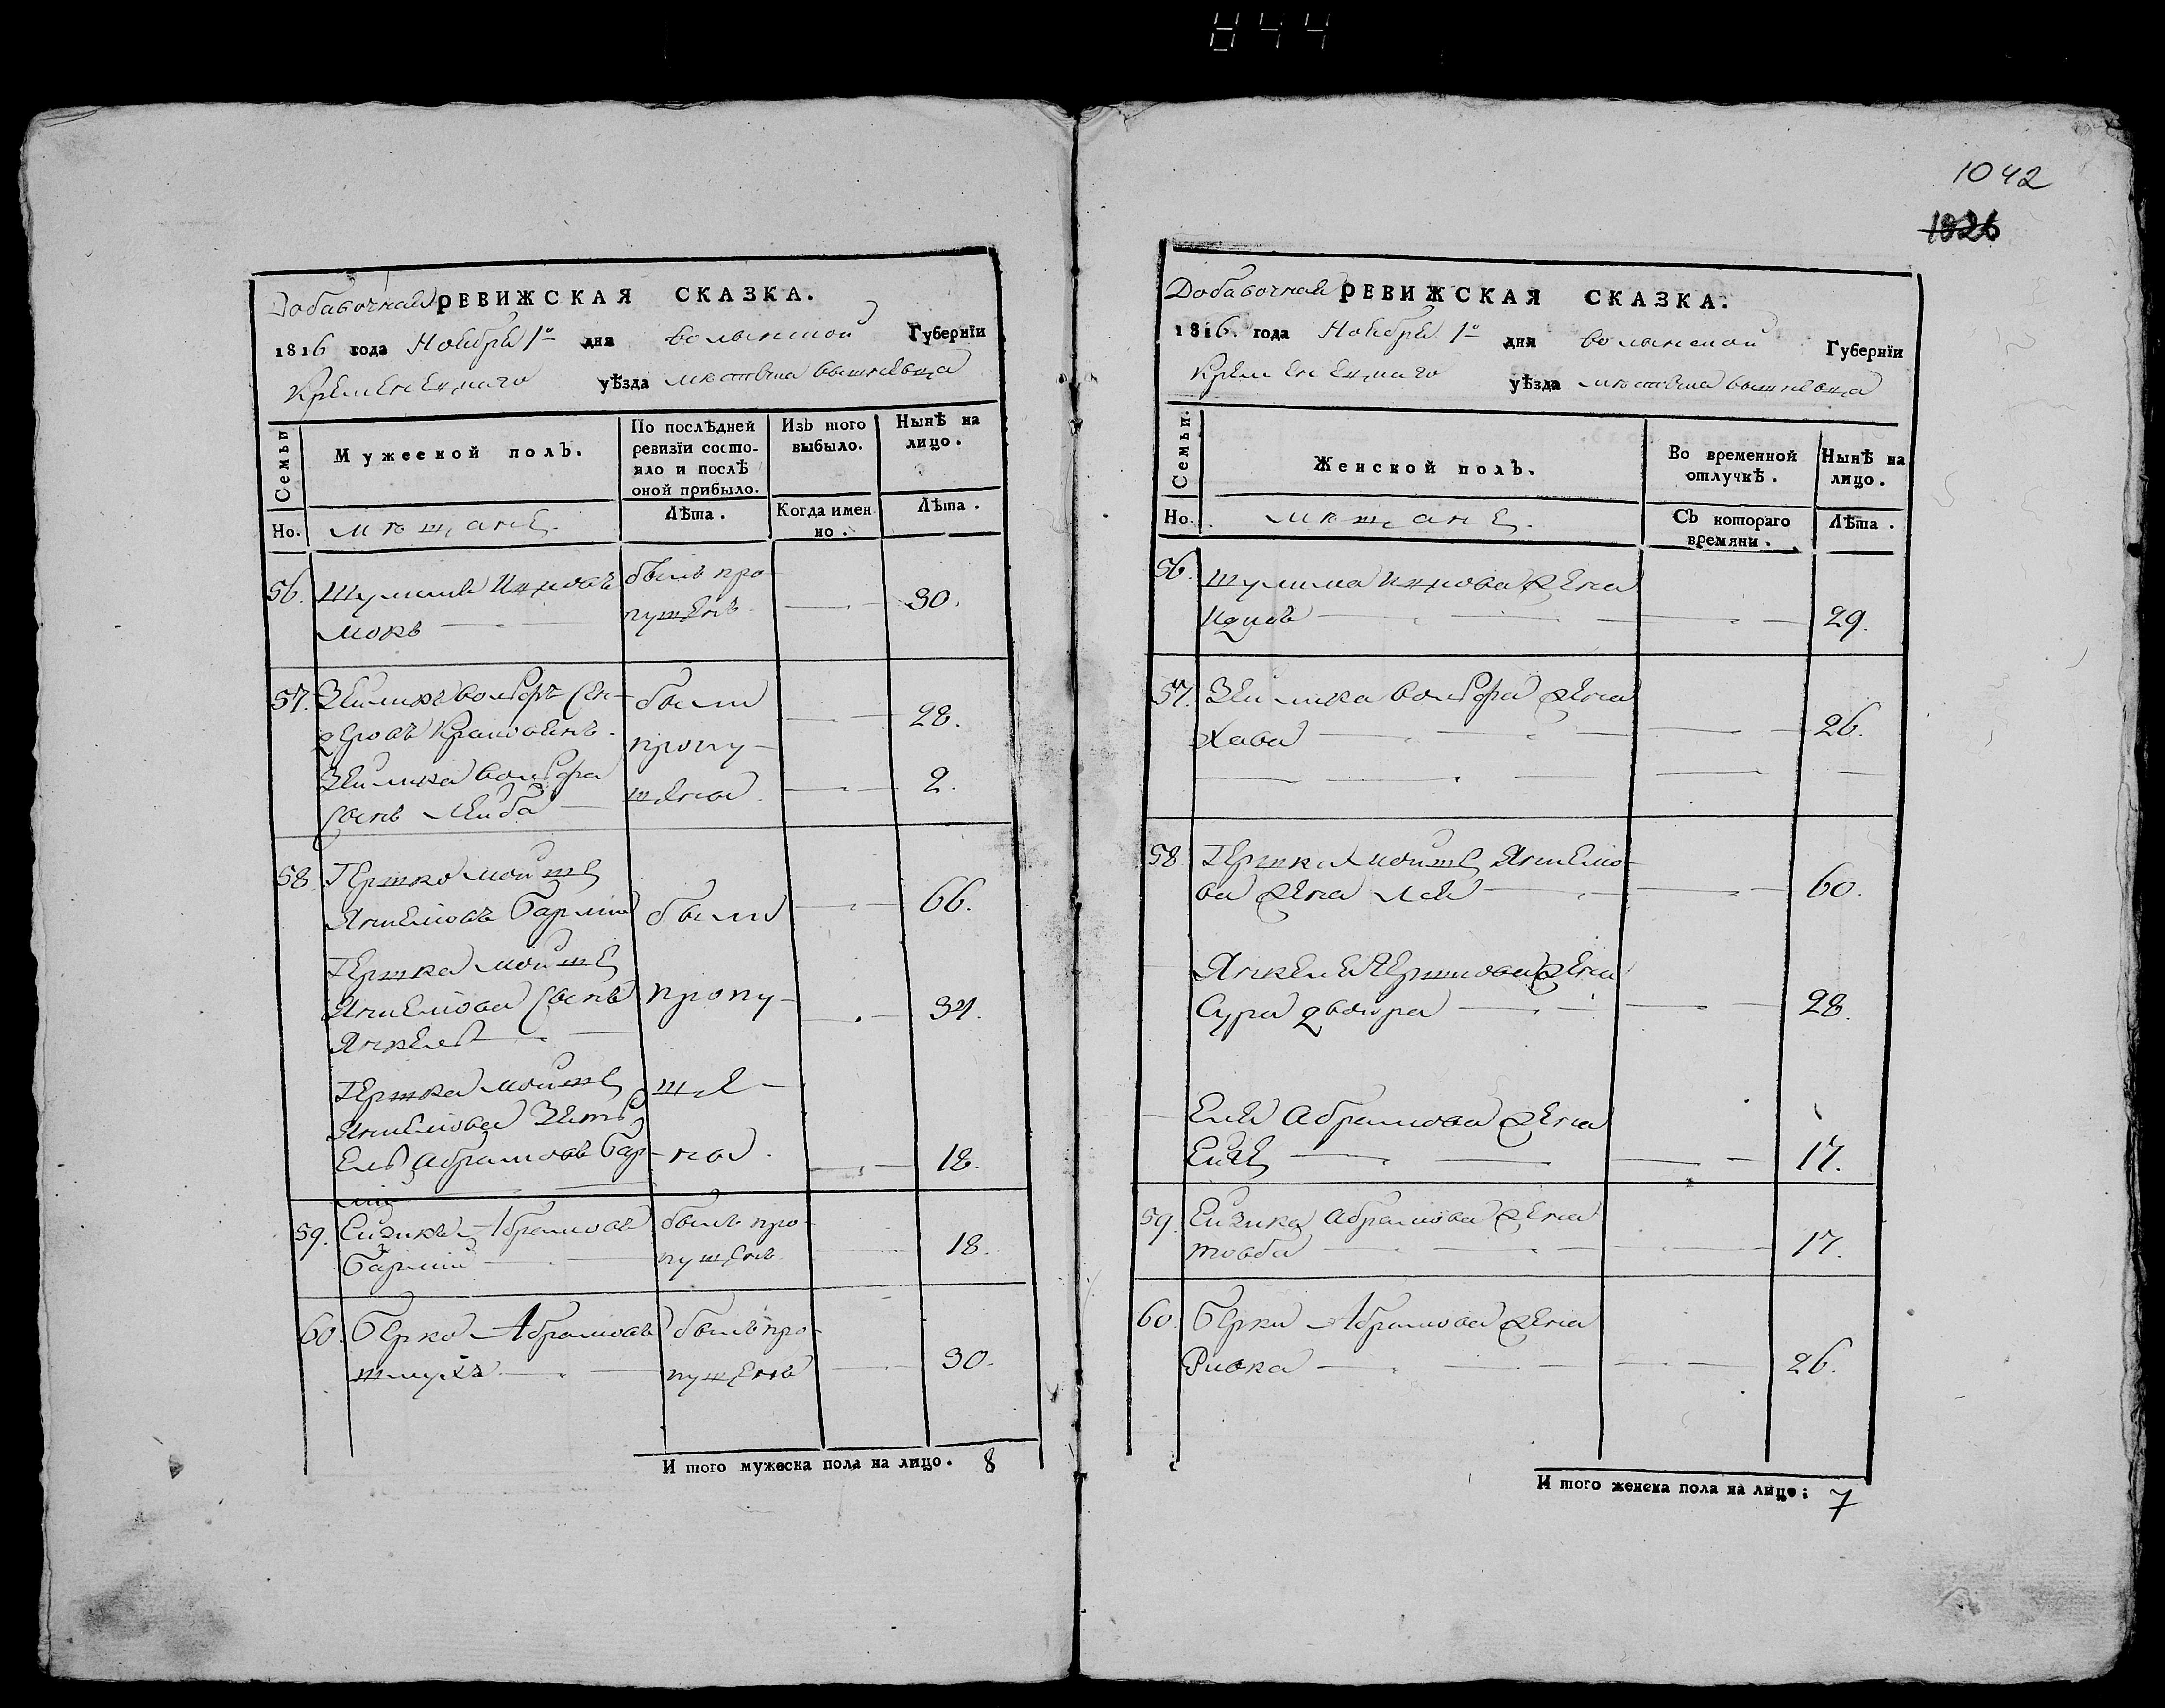 844
Добавочная РЕВИЖСКАЯ СКАЗКА.
1816 года Ноября 1го дня волынской Губернїи
Кременецкаго уѣзда мѣстечка вышневца
Семьи
Мужеской полъ.
По послѣдней ревизїи состояло и послѣ оной прибыло.
Изъ того выбыло.
Нынѣ на лицо.
Но.
мѣщане
Лѣта.
Когда именно.
Лѣта.
56. Шулим Ицковъ былъ про- 30.
пущенъ
57. Зейликъ вольфъ Сен- были 28.
пропу-
Зейлика вольфа 2.
сынъ Лейба щены
58. Гершко мойше
Янкелювъ были 66.
Гершка мойше
Янкелюва сынъ пропу- 34.
Янкель
Гершка мойше ще-
Янкелюва зять
Ель Абрамовъ ны 18.
59. Абрамовъ былъ про- 18.
пущенъ
60. Берко Абрамовъ былъ про- 30.
пущенъ
И того мужеска пола на лицо. 8
1042
1026
Добавочная РЕВИЖСКАЯ СКАЗКА.
1816. года Ноября 1го дня волынской Губернїи
Кременецкаго уѣзда мѣстечка вышневца
Семьи.
Женской полъ.
Во временной отлучкѣ.
Нынѣ на лицо.
Но.
мѣщане.
Съ котораго времяни.
Лѣта.
56. Шулима Ицкова жена
29.
57. Зейлика вольфа жена
Хава 26.
58 Гершка мойше Янкелю-
ва жена Лея 60.
Янкеля Гершкова жена
Сура двойра 28.
Еля Абрамова жена
17.
59. Абрамова жена
товба 17.
60. Берки Абрамова жена
Ривка 26.
И того женска пола на лицо: 7